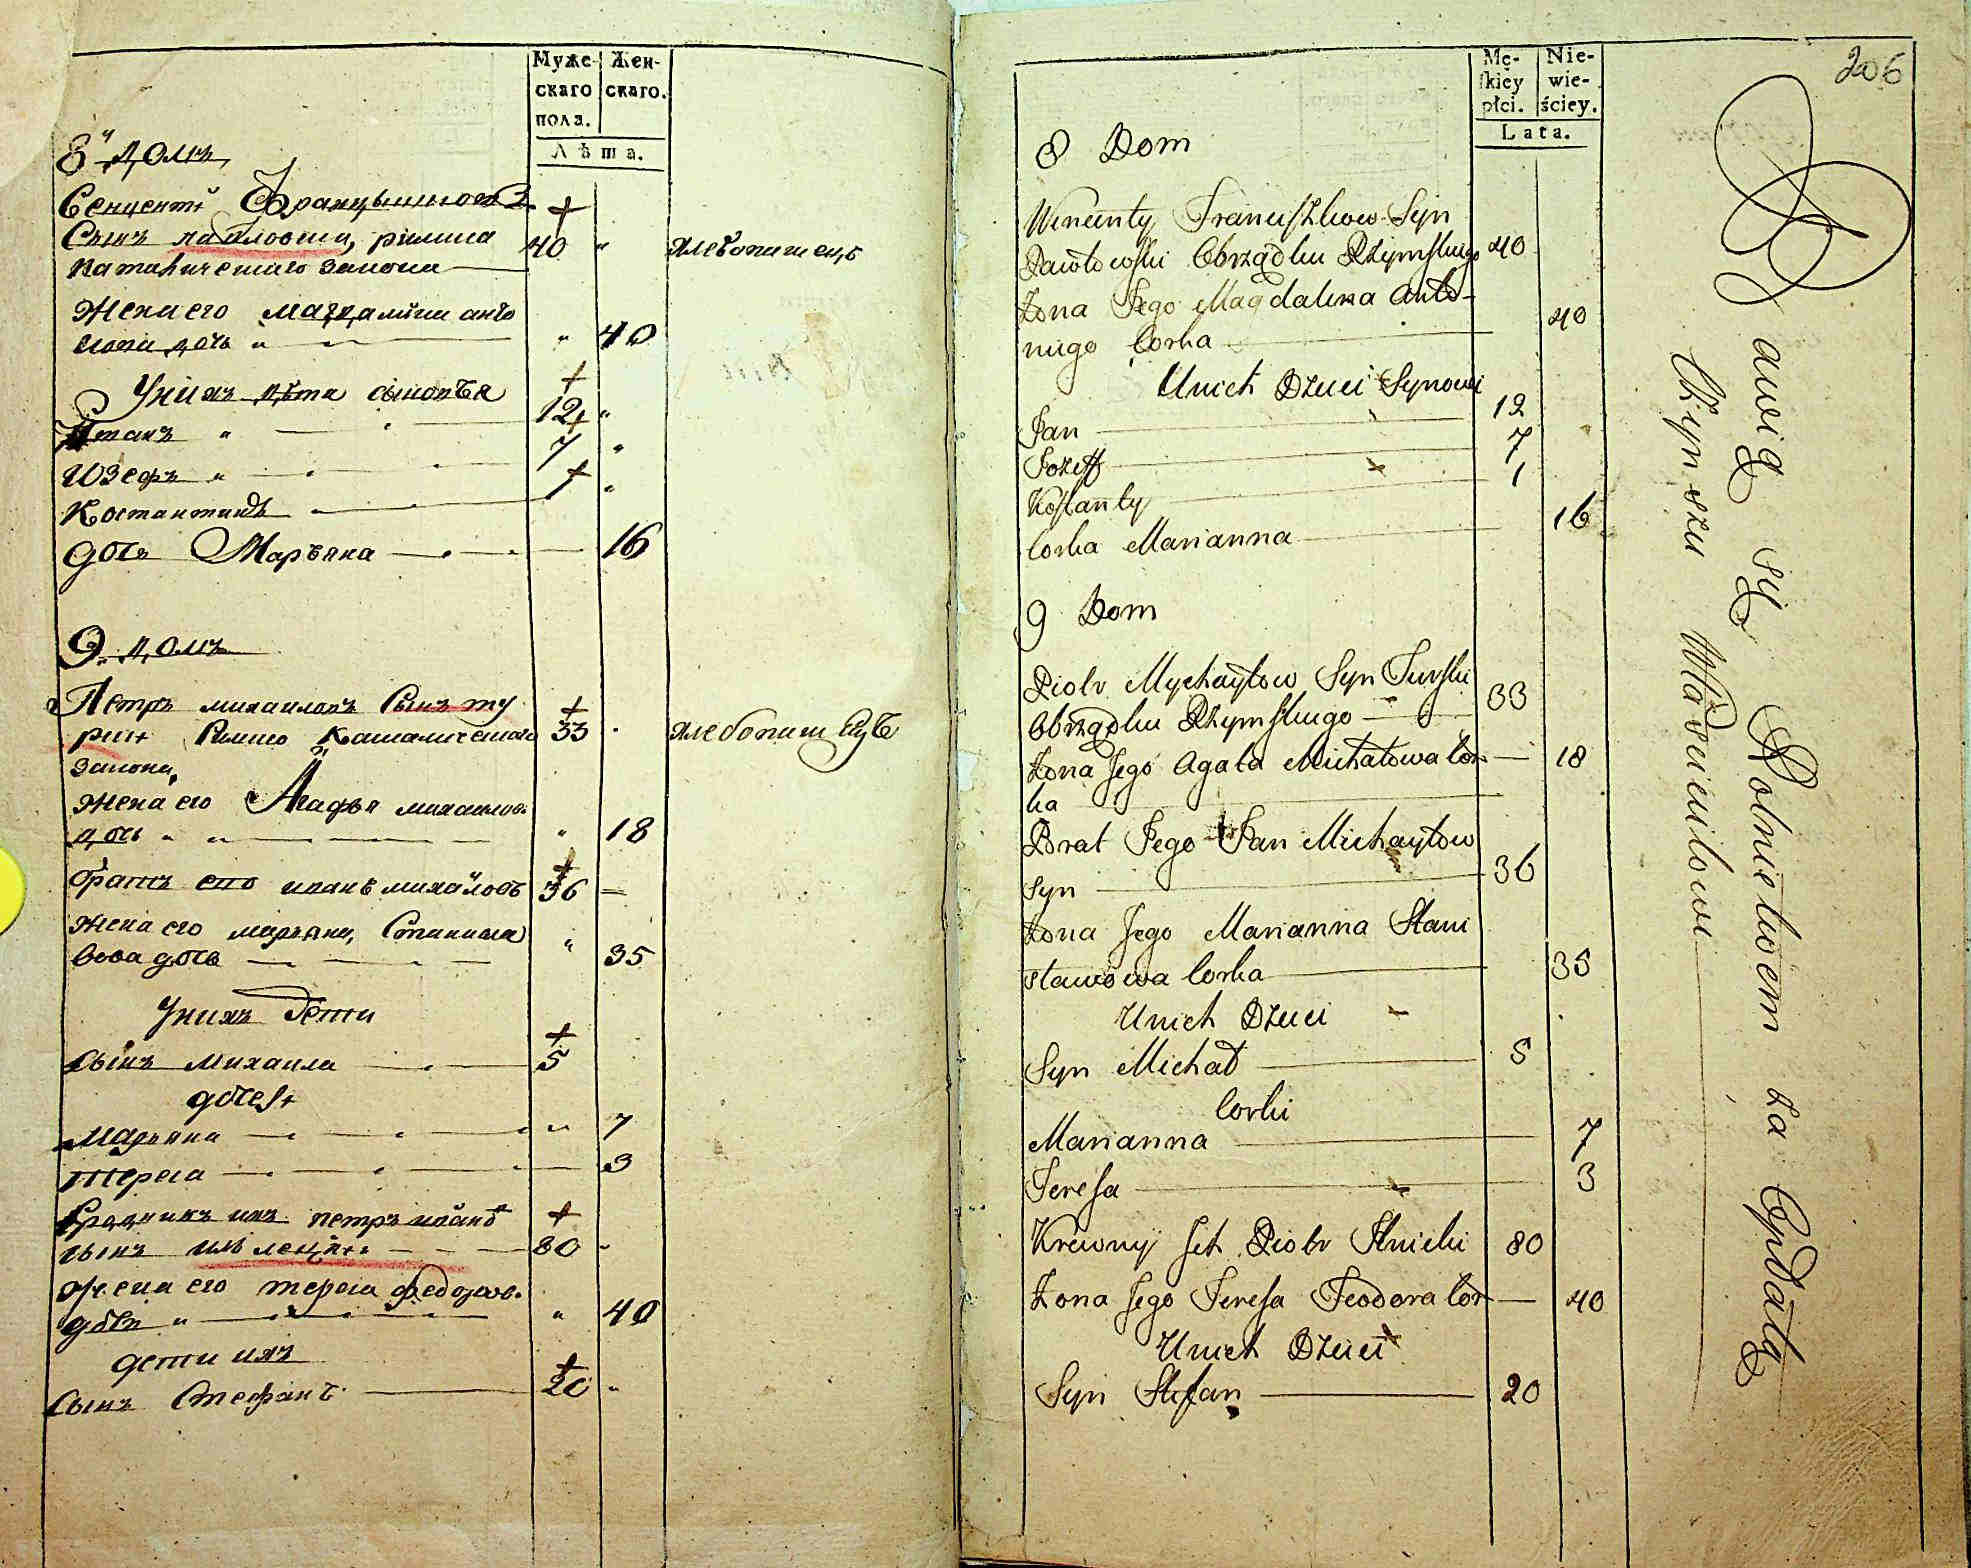 Муже-
скаго
пола.
Жен-
скаго.
Лѣта.
8й домъ
Венцентй Францышковъ
Сынъ павловски, римска
каталичешаго закона
40 „ хлебопашецъ
Жена его магдалина анто
нова дочь „ „ 40
У нихъ дѣти сыновья
Иванъ „ 12 „
Юзефъ „ 7 „
Костантинъ 1 „
дочь Марьяна 16
9. домъ
Петръ михаиловъ Сынъ ту
рски Римско Каталическаго 33 хлебопашецъ
закона,
жена его Агафья михаилов.
дочь „ „ „ 18
братъ его иванъ михайловъ 36
Жена его марьяна, Станисла
вова дочь „ 35
У нихъ дети
сынъ михаила 5
дочеря
марьяна „ 7
тереса 3
Сродникъ ихъ петръ иванъ
сынъ 80
жена его тереса федорова.
дочь „ „ 40
дети ихъ
Сынъ Стефанъ 20 „
206
Mę-
skiéy
płci.
Nie-
wie-
ściey.
Lata.
8 Dom
Wincenty Franciszkow Syn
Pawłowski Obrządku Rzymskiego 40
Zona Jego Magdalena Anto-
niego Corka 40
U nich Dzieci Synowi
Jan 12
Jozeff 7
Kostanty 1
Corka Marianna 16
9 Dom
Piotr Mychayłow Syn Turski
Obrządku Rzymskiego 33
Zona Jego Agata Michałowa Cor 18
ka
Brat Jego Jan Michayłow
Syn 36
Zona Jego Marianna Stani
sławowa Corka 35
U nich Dzieci
Syn Michał 5
Corki
Marianna 7
Teresa 3
Krewny Ich Piotr Ilnicki 80
Zona Jego Teresa Teodora Cor 40
U nich Dzieci
Syn Stefan 20
Bawią się Rolnictwem za Opłatą
Czynszu Właścicielowi